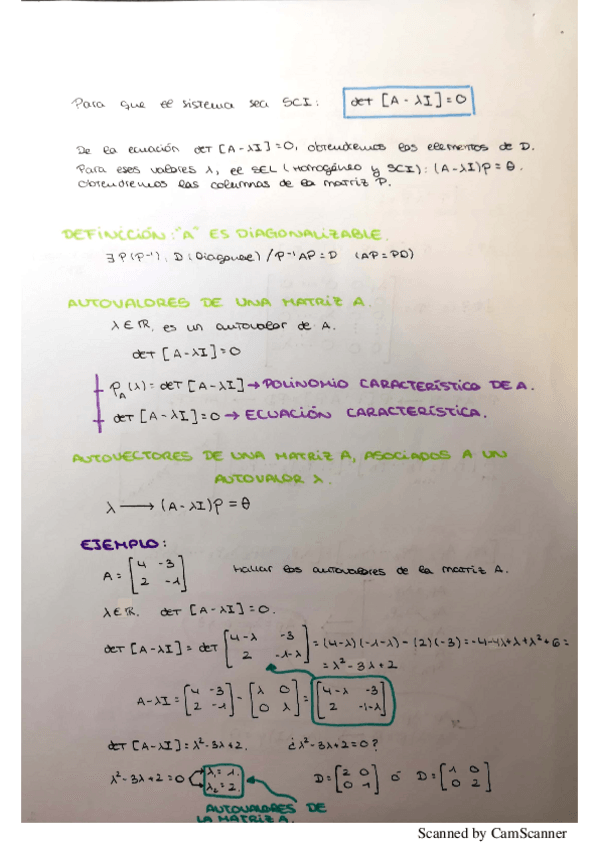 Para que el sistema sea SCI: det [A - λI] = 0
De la ecuación det [A - λI] = 0, obtendremos los elementos de D.
Para esos valores λ, el SEL (Homogéneo y SCI): (A - λI)P = θ.
obtendremos las columnas de la matriz P.
DEFINICIÓN: "A" ES DIAGONALIZABLE.
∃ P(P⁻¹), D (Diagonal) / P⁻¹AP = D (AP = PD)
AUTOVALORES DE UNA MATRIZ A.
λ ∈ ℝ, es un autovalor de A.
det [A - λI] = 0
P_A(λ) = det [A - λI] → POLINOMIO CARACTERÍSTICO DE A.
det [A - λI] = 0 → ECUACIÓN CARACTERÍSTICA.
AUTOVECTORES DE UNA MATRIZ A, ASOCIADOS A UN
AUTOVALOR λ.
λ → (A - λI)P = θ
EJEMPLO:
A = [4 -3; 2 -1] Hallar los autovalores de la matriz A.
λ ∈ ℝ, det [A - λI] = 0.
det [A - λI] = det [4-λ -3; 2 -1-λ] = (4-λ)(-1-λ) - (2)(-3) = -4-4λ+λ+λ²+6 =
= λ² - 3λ + 2
A - λI = [4 -3; 2 -1] - [λ 0; 0 λ] = [4-λ -3; 2 -1-λ]
det [A - λI] = λ² - 3λ + 2. ¿λ² - 3λ + 2 = 0?
λ² - 3λ + 2 = 0 λ₁ = 1. λ₂ = 2. D = [2 0; 0 1] ó D = [1 0; 0 2]
AUTOVALORES DE
LA MATRIZ A.
Scanned by CamScanner